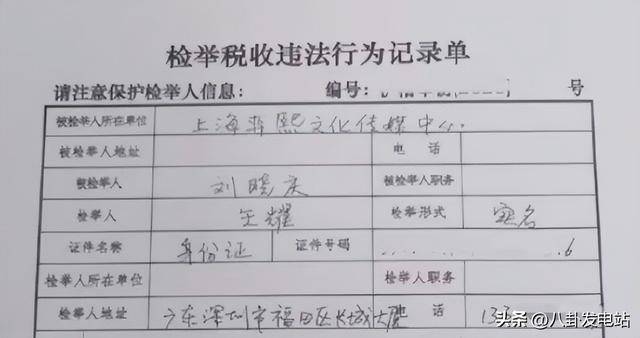 检举税收违法行为记录单
请注意保护检举人信息： 编号： 号
被检举人所在单位 上海 熙文化传媒中心
被检举人地址 电 话
被检举人 刘晓庆 被检举人职务
检举人 王耀 检举形式 实名
证件名称 身份证 证件号码 6
检举人所在单位 检举人职务
检举人地址 广东深圳市福田区长城大 话 133
头条 @八卦发电站